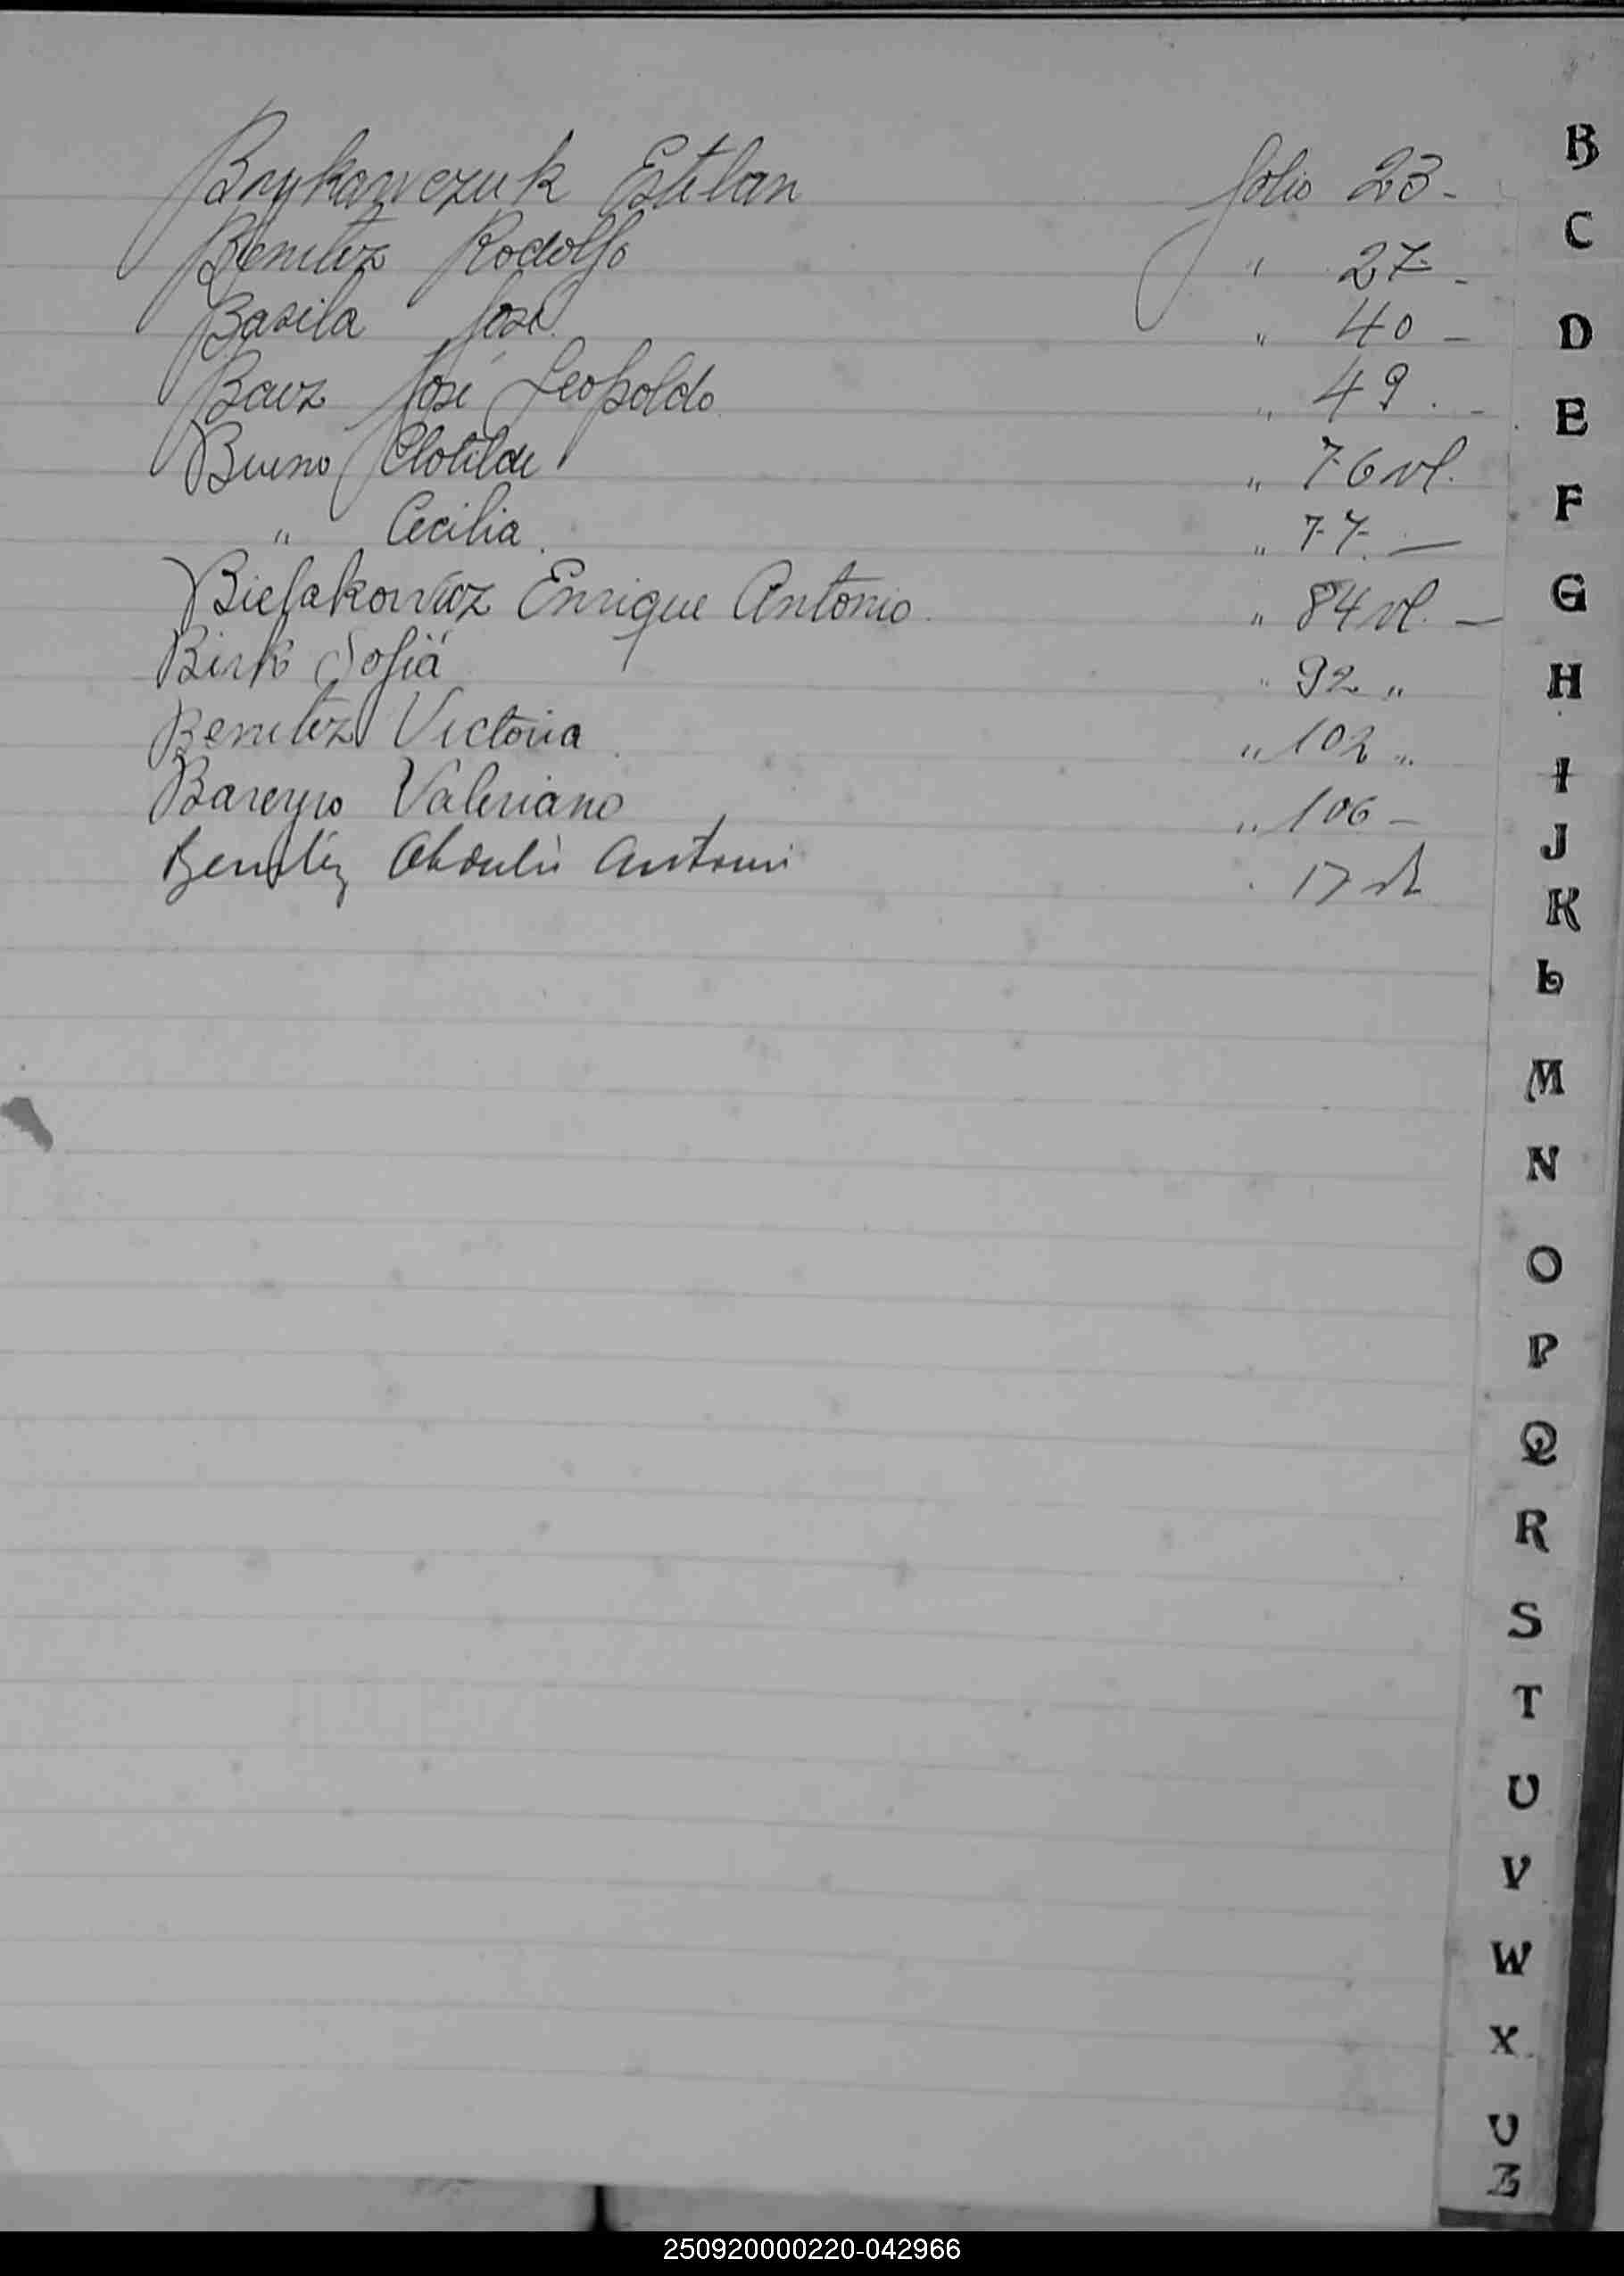 Brykawczuk Estilan folio 23 -
Benitez Rodolfo " 27 -
Basila José " 40 -
Baez José Leopoldo " 49 . -
Bueno Clotilde " 76 vl.
" Cecilia . " 77. —
Bielakowicz Enrique Antonio . " 84 vl. —
Birk Sofía " 92 "
Benitez Victoria . " 102 "
Bareyro Valeriano " 106 -
Benitez Antonio . 17
B
C
D
E
F
G
H
I
J
K
L
M
N
O
P
Q
R
S
T
U
V
W
X
Z
250920000220-042966